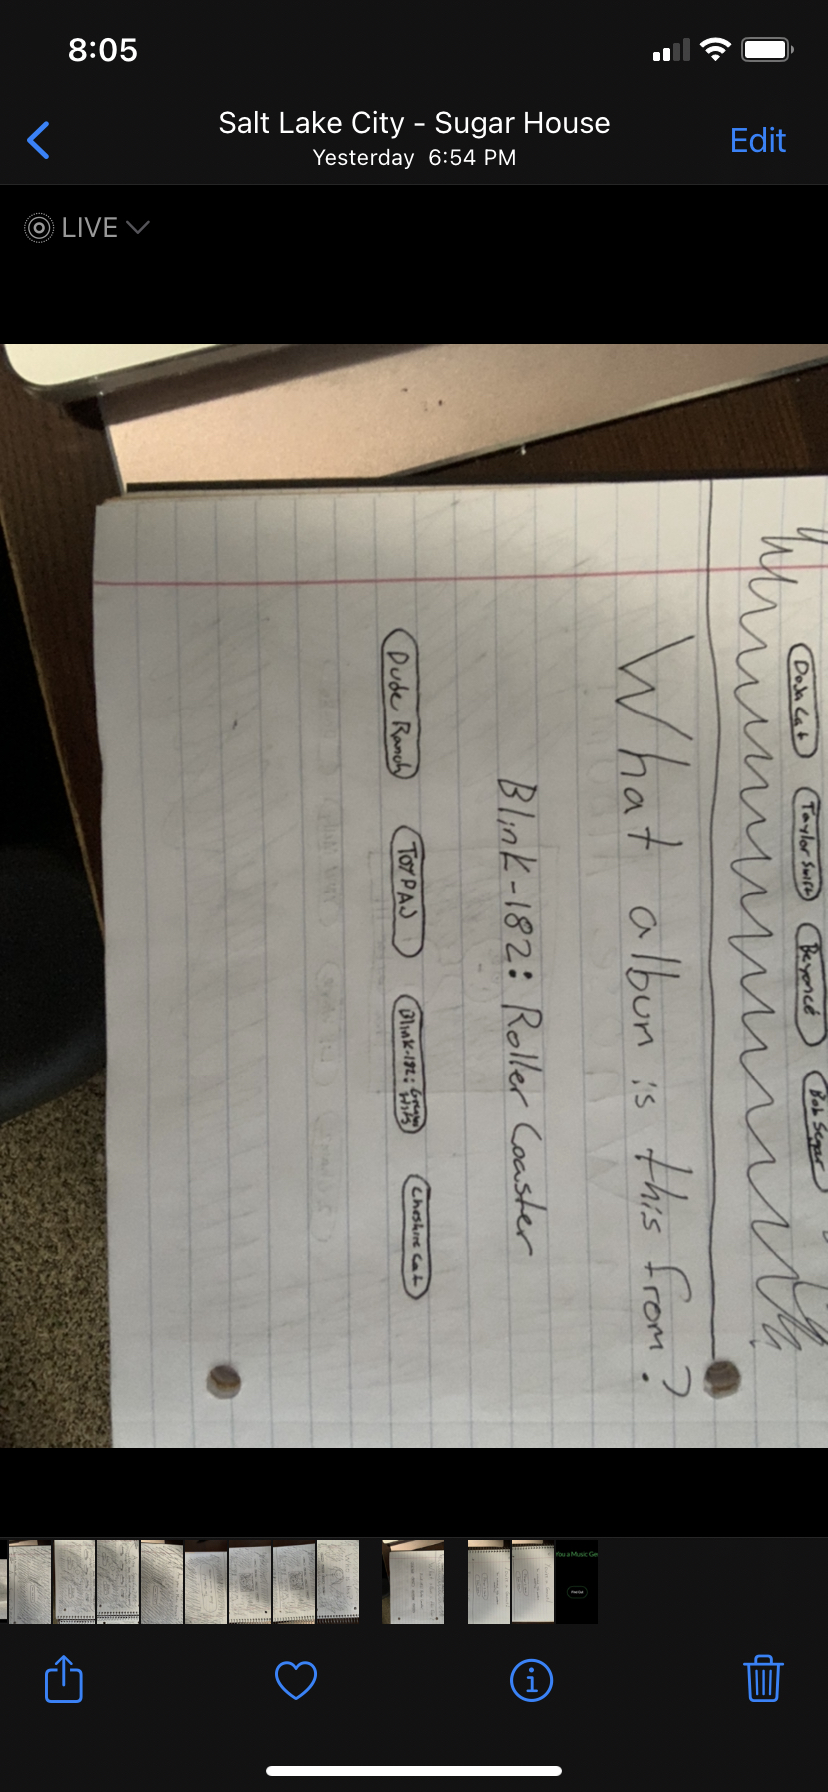 8:05
Salt Lake City - Sugar House
Yesterday 6:54 PM
Edit
LIVE
Doja Cat
Taylor Swift
Beyoncé
Bob Seger
What album is this from?
Blink-182: Roller Coaster
Dude Ranch
TOYPAJ
Blink-182: Greatest Hits
Cheshire Cat
You a Music Ge